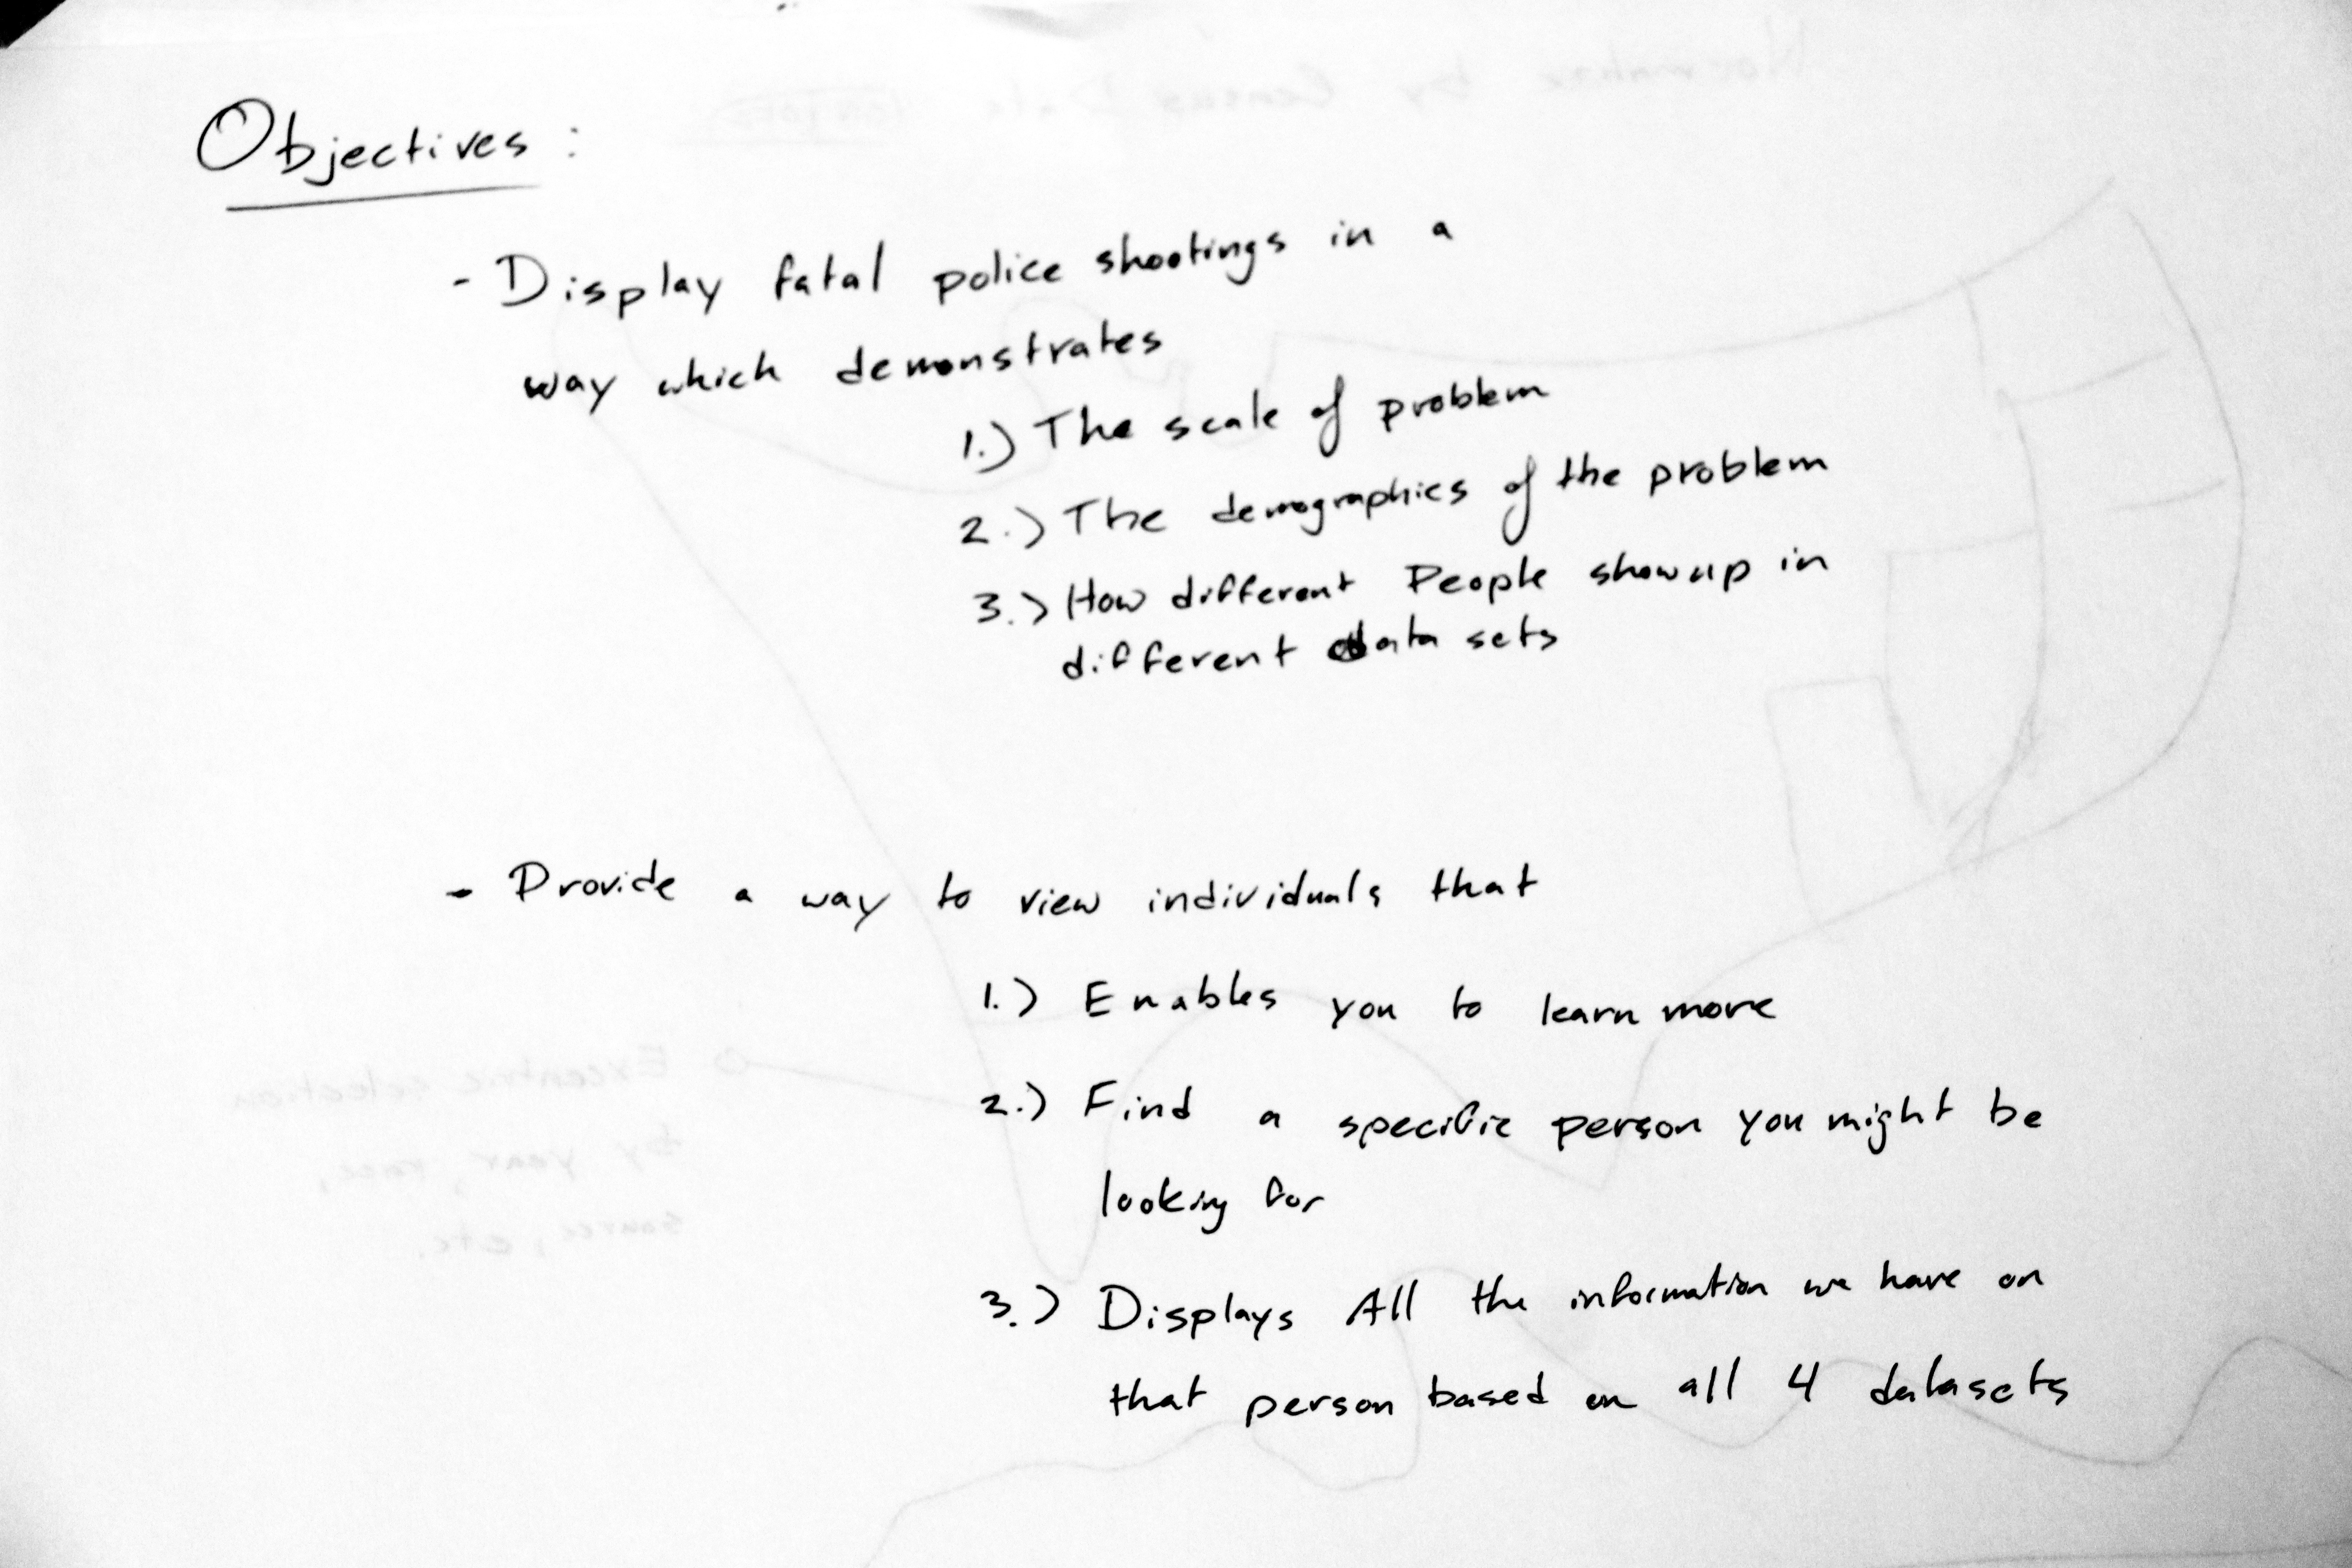 Objectives :
- Display fatal police shootings in a
way which demonstrates
1.) The scale of problem
2.) The demographics of the problem
3.) How different People show up in
different data sets
- Provide a way to view individuals that
1.) Enables you to learn more
2.) Find a specific person you might be
looking for
3.) Displays All the information we have on
that person based on all 4 datasets